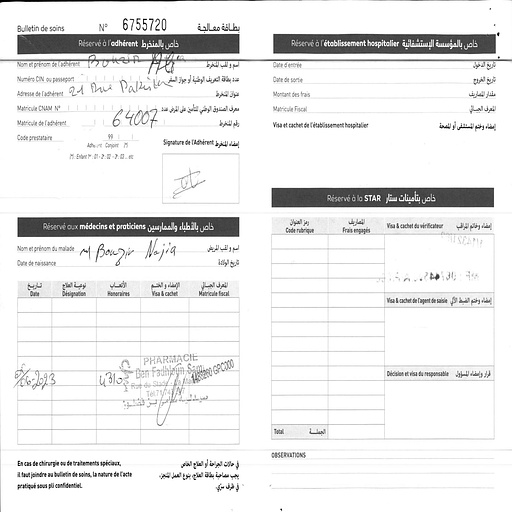 Bulletin de soins N° 6755720 بطاقة معالجة
Réservé à l'adhérent خاص بالمنخرط
Nom et prénom de l'adhérent Bouzir اسم و لقب المنخرط
Numéro CIN ou passeport عدد بطاقة التعريف الوطنية أو جواز السفر
Adresse de l'adhérent 21 Rue عنوان المنخرط
Matricule CNAM N° معرف الصندوق الوطني للتأمين على المرض عدد
Matricule de l'adhérent 64007 رقم المنخرط
Code prestataire 99
Signature de l'Adhérent إمضاء المنخرط
Réservé aux médecins et praticiens خاص بالأطباء والممارسين
Nom et prénom du malade M Bouzir Najia اسم و لقب المريض
Date de naissance تاريخ الولادة
تاريخ نوعية العلاج الأتعاب الإمضاء و الختم المعرف الجبائي
Date Désignation Honoraires Visa & cachet Matricule fiscal
PHARMACIE
Ben Fadhloun Sami
06-2023 4310
Rue du Stade
En cas de chirurgie ou de traitements spéciaux,
il faut joindre au bulletin de soins, la nature de l'acte
pratiqué sous pli confidentiel.
في حالات الجراحة أو العلاج الخاص
يجب مصاحبة بطاقة العلاج، بنوع العمل المنجز،
في ظرف سري.
Réservé à l'établissement hospitalier خاص بالمؤسسة الإستشفائية
Date d'entrée تاريخ الدخول
Date de sortie تاريخ الخروج
Montant des frais مقدار المصاريف
Matricule Fiscal المعرف الجبائي
Visa et cachet de l'établissement hospitalier إمضاء وختم المستشفى أو المصحة
Réservé à la STAR خاص بتأمينات ستار
رمز العنوان المصاريف
Code rubrique Frais engagés
Visa & cachet du vérificateur إمضاء وخاتم المراقب
Visa & cachet de l'agent de saisie إمضاء وختم الضبط الآلي
Décision et visa du responsable قرار وإمضاء المسؤول
Total الجملة
OBSERVATIONS